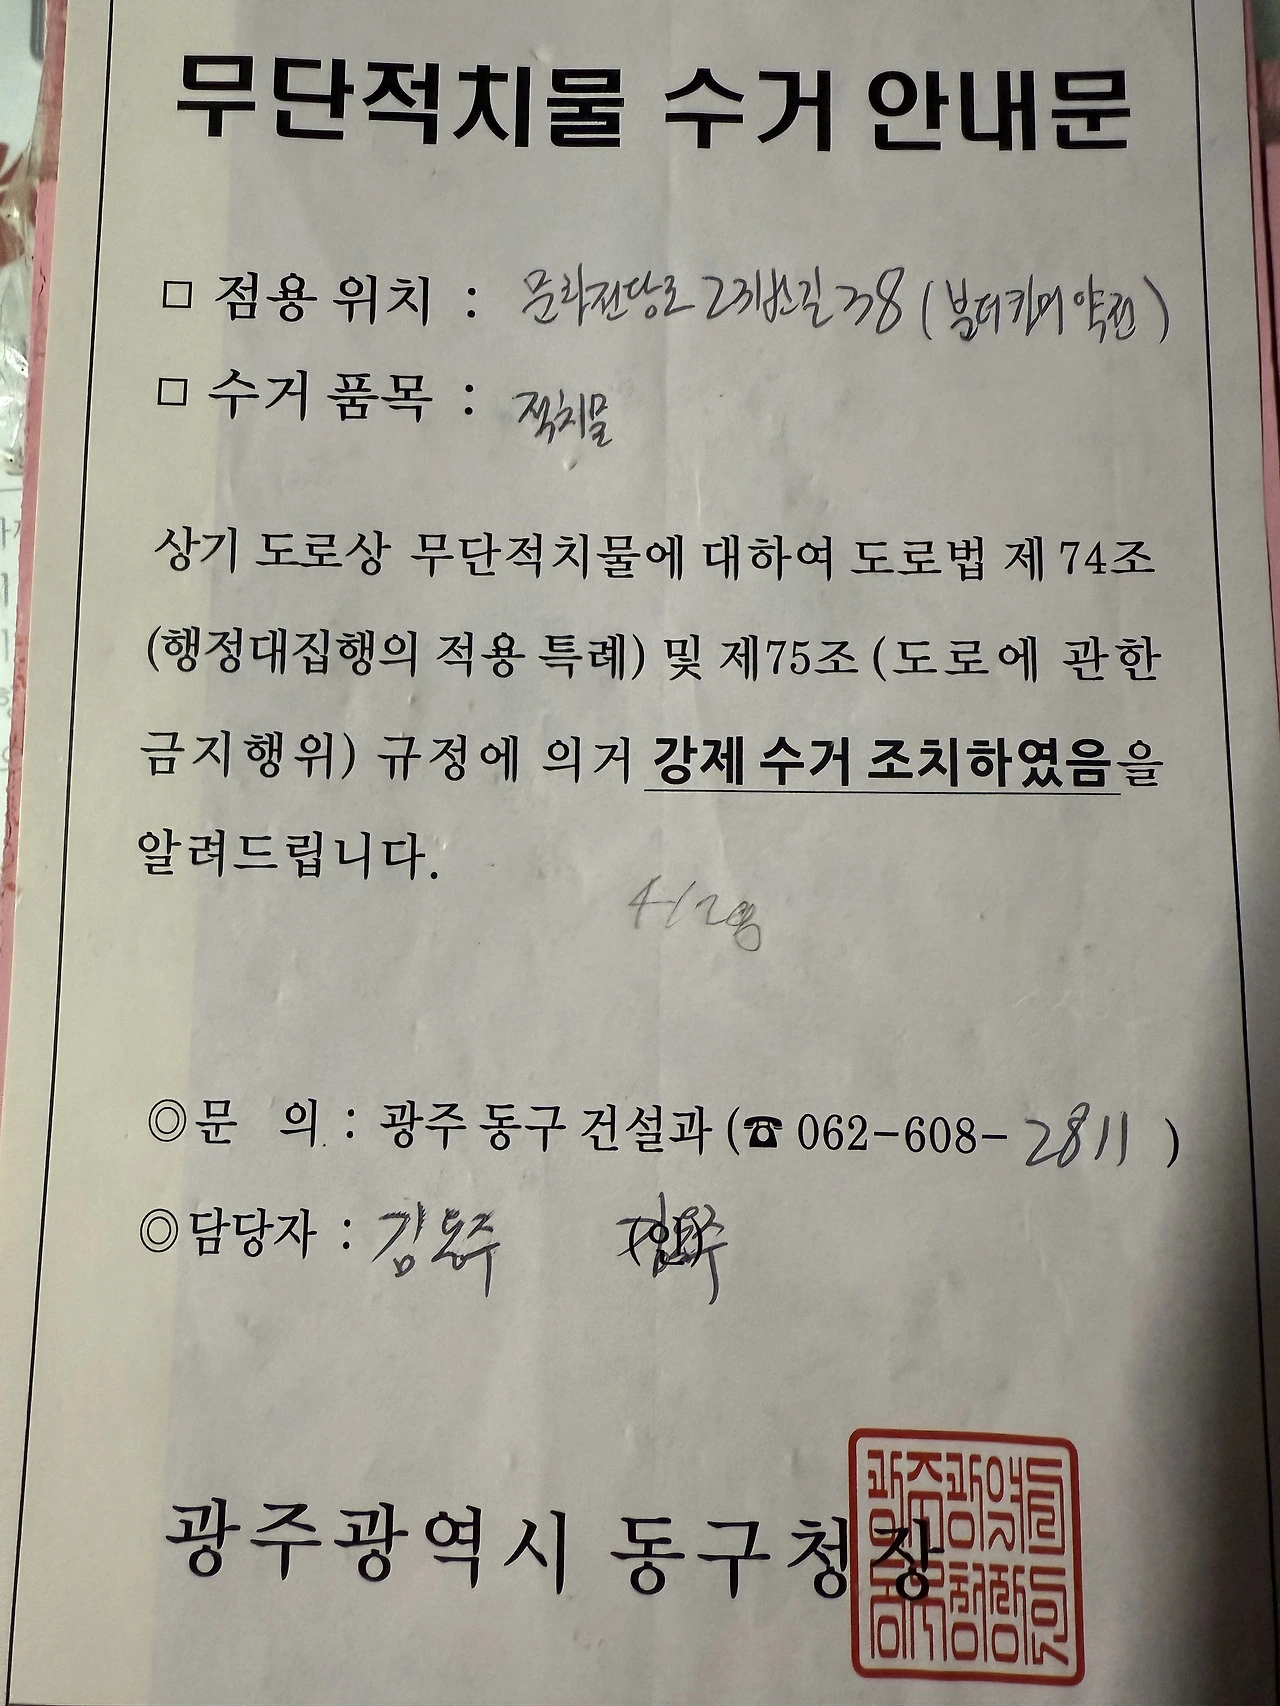 무단적치물 수거 안내문
□ 점용 위치 : 문화전당로23번길 38 (
□ 수거 품목 : 적치물
상기 도로상 무단적치물에 대하여 도로법 제 74조
(행정대집행의 적용 특례) 및 제75조 (도로에 관한
금지행위) 규정에 의거 강제 수거 조치하였음을
알려드립니다.
◎ 문 의 : 광주 동구 건설과 (☎ 062-608-2811 )
◎ 담당자 : 김동주 (인)
광주광역시 동구청장